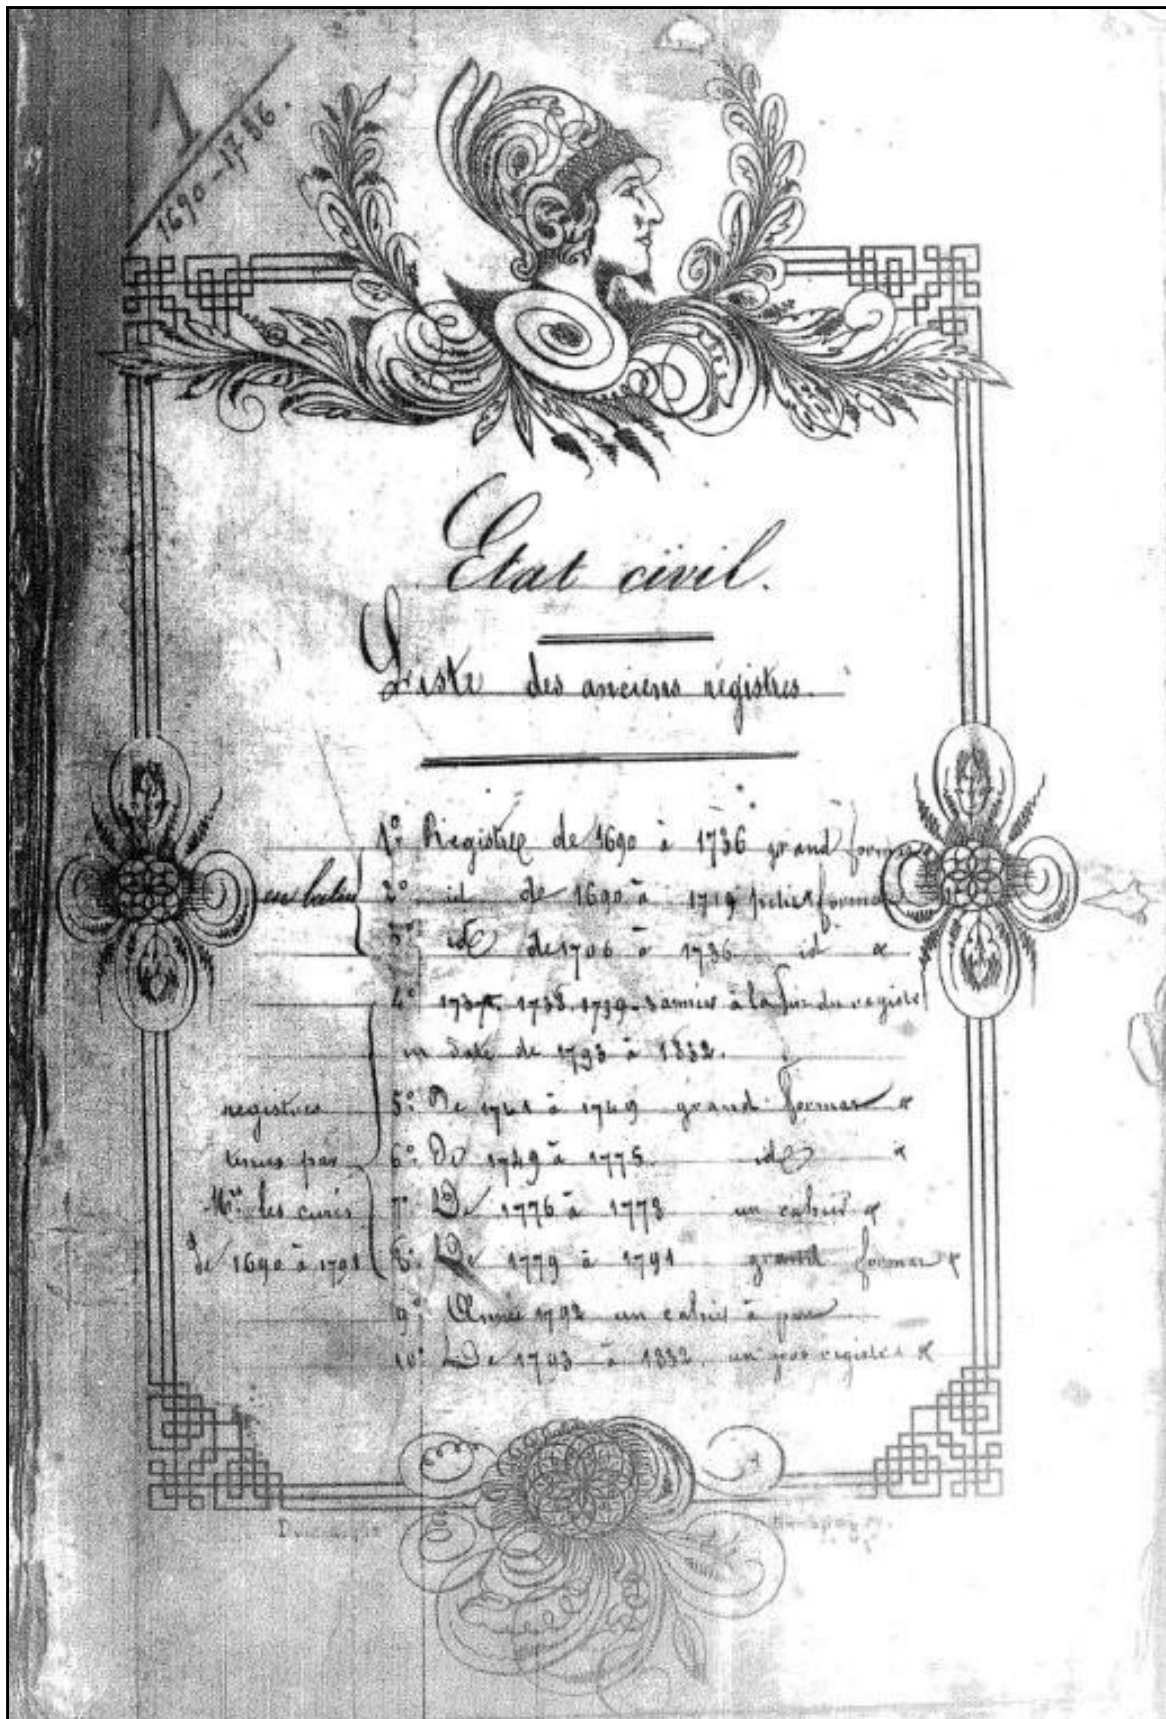 1
1690-1736.
Etat civil.
Liste des anciens régistres.
1° Régistre de 1690 à 1736 grand format
en latin 2° id de 1690 à 1719 petit format
3° id de 1706 à 1736 id
4° 1737. 1738. 1739. 3 années à la fin du registre
en date de 1793 à 1832.
registres 5° De 1741 à 1749 grand format
tenus par 6° De 1749 à 1775. id
Mrs les curés 7° De 1776 à 1778 un cahier
de 1690 à 1791 8° De 1779 à 1791 grand format
9° Année 1792 un cahier à part
10° De 1793 à 1832. un gros registre